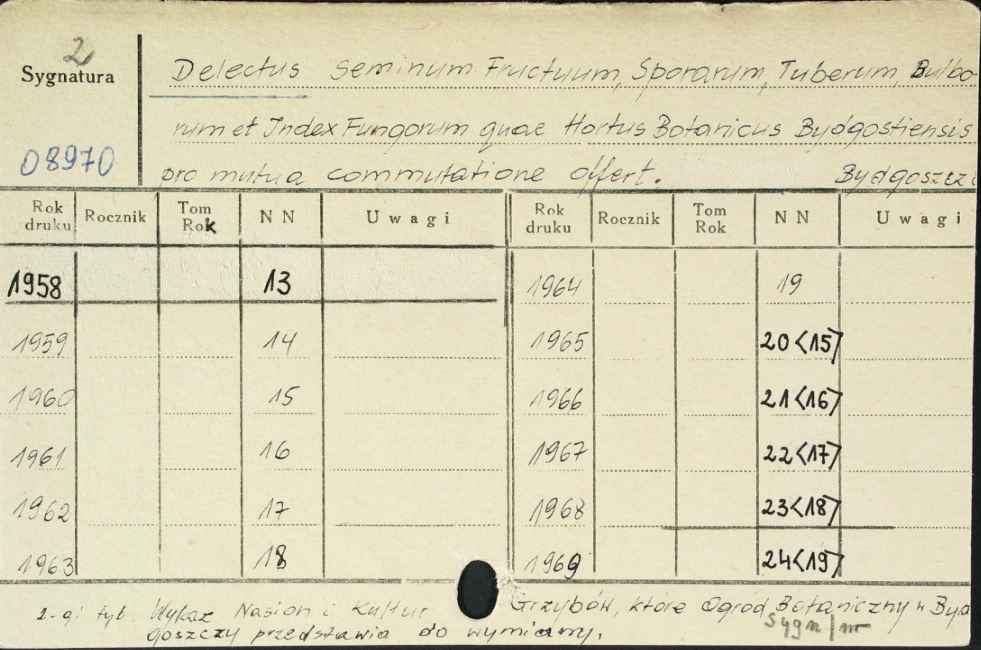 2
Sygnatura
08970
Delectus Seminum Fructuum, Sporarum, Tuberum, Bulbo-
rum et Index Fungorum quae Hortus Botanicus Bydgostiensis
pro mutua commutatione offert. Bydgoszcz
Rok druku Rocznik Tom Rok NN Uwagi Rok druku Rocznik Tom Rok NN Uwagi
1958 13 1964 19
1959 14 1965 20<15>
1960 15 1966 21<16>
1961 16 1967 22<17>
1962 17 1968 23<18>
1963 18 1969 24<19>
2-gi tyt. Wykaz Nasion i Kultur Grzybów, które Ogród Botaniczny w Byd
goszczy przedstawia do wymiany.
Sygn/m